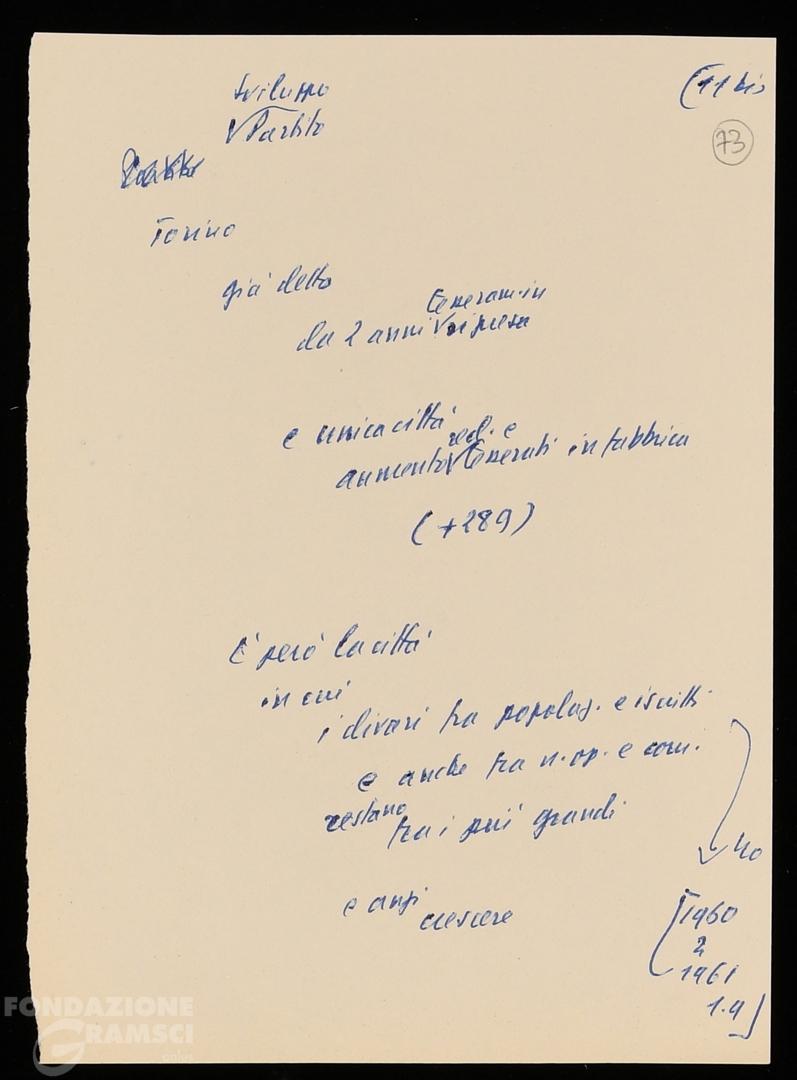 (11 bis
73
Sviluppo
Partito
Torino
già detto
tesseram. in
da 2 anni ripresa
e unica città
recl. e
aumento tesserati in fabbrica
(+289)
È però la città
in cui
i divari tra popolaz. e iscritti
e anche tra n. op. e com.
restano
tra i più grandi
e anzi
crescere
no
[1960
2
1961
1.9]
FONDAZIONE
GRAMSCI
onlus